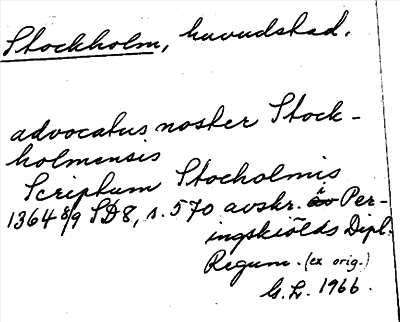 Stockholm, huvudstad.
advocatus noster Stock-
holmensis
Scriptum Stocholmis
1364 8/9 SD8, s. 570 avskr. äv Per-
ingskiölds Dipl.
Regum. (ex orig.)
G.L. 1966.